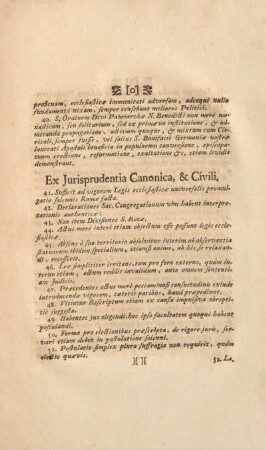 [o]
proficuum, ecclesiasticæ immunitati adversum, adeoque nullo
fundamento nixum, semper censebunt meliores Politici.
40. S. Ordinem Divi Patriarchæ N. Benedicti non mere mo-
nasticum, seu solitarium, sed ex primæva institutione, & ad-
miranda propagatione, activum quoque, & mixtum cum Cle-
ricali, semper fuisse, vel solius S. Bonifacii Germaniæ nostræ
laureati Apostoli beneficia in populorum conversione, episcop-
atuum erectione, reformatione, exaltatione &c. etiam invidis
demonstrant.
Ex Jurisprudentia Canonica, & Civili,
41. Sufficit ad vigorem Legis ecclesiasticæ universalis promul-
gatio solennis Romæ facta.
42. Declarationes Sac. Congregationum vim habent interpre-
tationis authenticæ:
43. Non item Decisiones S. Rotæ.
44. Actus mere interni etiam objectum esse possunt legis eccle-
siasticæ.
45. Absens à suo territorio abstinetur interim ab observantia
statutorum ibidem specialium, etiamsi animo, ab his se relaxan-
di, excessit.
46. Lex simpliciter irritans, tam pro foro externo, quàm in-
terno etiam, actum reddit invalidum, ante omnem senten-
am Judicis.
47. Præcedentes actus merè peccaminosi consuetudinis exinde
introducendæ vigorem, cæteris paribus, haud præpediunt.
48. Vitiatur Rescriptum etiam ex causa impulsiva obrepti-
tiè suggesta.
49. Habentes jus eligendi, hoc ipso facultatem quoque habent
postulandi.
50. Forma pro electionibus præscripta, de rigore juris, ser-
vari etiam debet in postulatione solenni.
51. Postulatio simplex plura suffragia non requirit, quàm
electio quævis.
][ 52. Le-